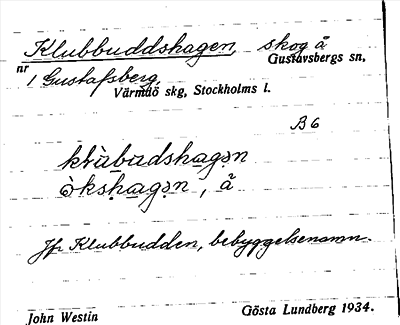 Klubbuddshagen, skog å
Gustavsbergs sn,
nr 1 Gustafsberg,
Värmdö skg, Stockholms l.
B6
klùbudshagən
òkshagən, å
Jfr Klubbudden, bebyggelsenamn.
John Westin Gösta Lundberg 1934.